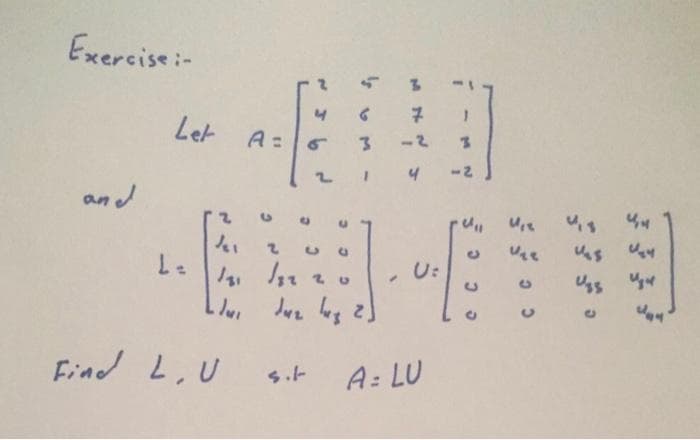 Exercise :-
Let A = [ 2 5 3 -1
4 6 7 1
5 3 -2 3
2 1 4 -2 ]
and
L = [ 2 0 0 0
l21 2 0 0
l31 l32 2 0
l41 l42 l43 2 ] , U = [ u11 u12 u13 u14
0 u22 u23 u24
0 0 u33 u34
0 0 0 u44 ]
Find L, U s.t A = LU